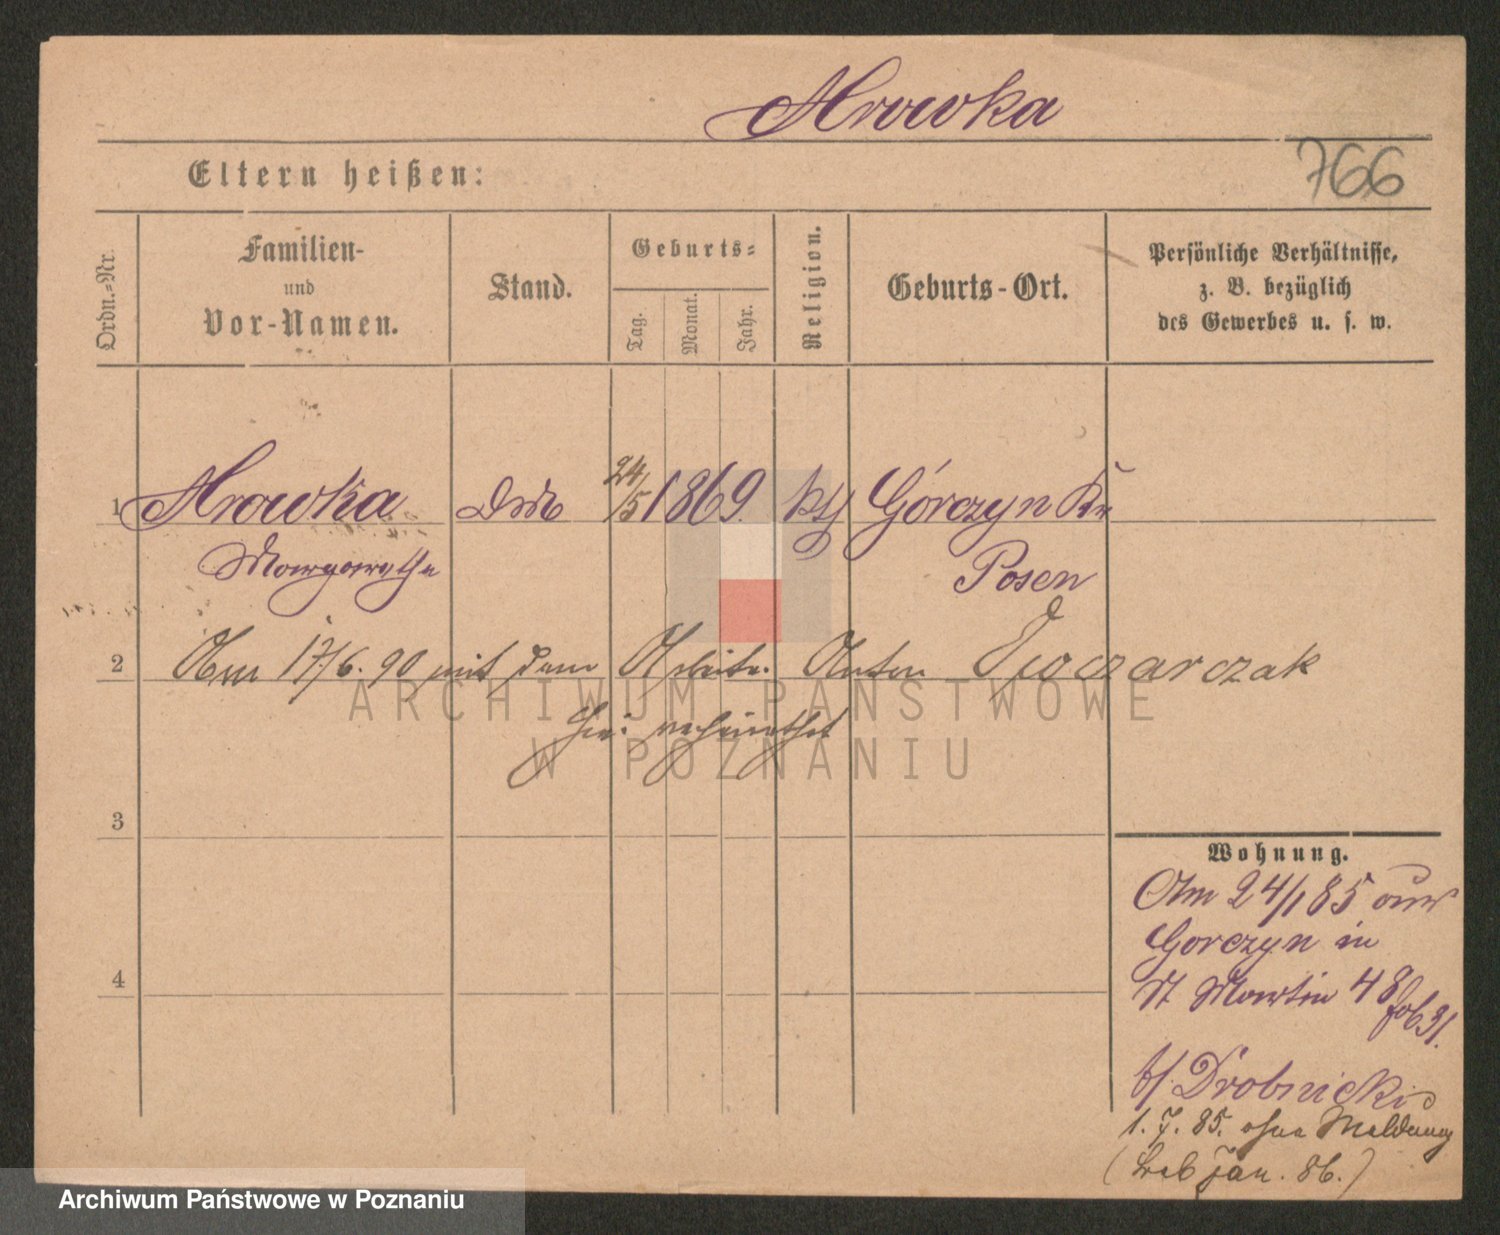 Mrowka
766
Eltern heißen:
Ordn.-Nr.
Familien-
und
Vor-Namen.
Stand.
Geburts-
Tag.
Monat.
Jahr.
Religion.
Geburts-Ort.
Persönliche Verhältnisse,
z. B. bezüglich
des Gewerbes u. s. w.
1 Mrowka 24/5 1869. kth Górczyn Kr
Margarethe Posen
2 Am 17/6. 90 mit dem Arbeiter Anton Owczarczak
hier verheirathet
3
4
Wohnung.
Am 24/1 85 aus
Gorczyn in
St Martin 48
b/ Drobnicki
1. 7. 85. ohne Meldung
(Reb Jan. 86.)
ARCHIWUM PAŃSTWOWE
W POZNANIU
Archiwum Państwowe w Poznaniu